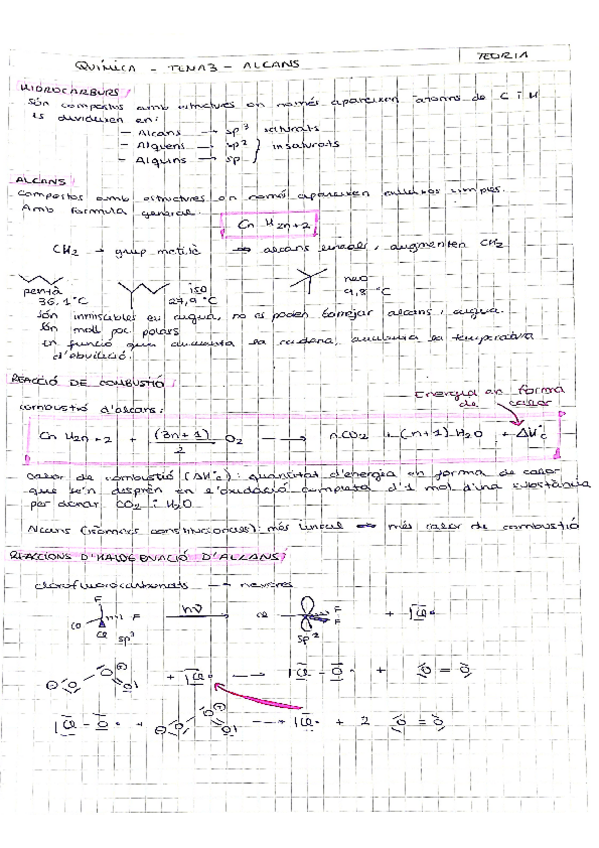 TEORIA
QUÍMICA - TEMA 3 - ALCANS
HIDROCARBURS
són compostos amb estructures on només apareixen àtoms de C i H
Es divideixen en:
- Alcans → sp³ saturats
- Alquens → sp² } insaturats
- Alquins → sp
ALCANS
Compostos amb estructures on només apareixen enllaços simples.
Amb formula general.
Cn H2n+2
CH2 → grup metilè → alcans lineals, augmenten CH2
pentà iso neo
36,1°C 27,9°C 9,8°C
Són inmiscibles en augua, no es poden barrejar alcans i augua.
Són molt poc polars
En funció que augmenta la cadena, augmenta la temperatura
d'ebullició.
REACCIÓ DE COMBUSTIÓ
Energia en forma
de calor
combustió d'alcans:
Cn H2n+2 + (3n+1)/2 O2 → nCO2 + (n+1) H2O + ΔH°c
calor de combustió (ΔH°c): quantitat d'energia en forma de calor
que se'n desprèn en l'oxidació completa d'1 mol d'una substància
per donar CO2 i H2O
Alcans (isòmers constitucionals): més lineal → més calor de combustió
REACCIONS D'HALOGENACIÓ D'ALCANS
clorofluorocarbonats → neveres
F
F hν Cl F + |Cl•
Cl Cl sp³ sp² F
+ |Cl• → |Cl - O• + O = O
|Cl - O• + → |Cl• + 2 O = O